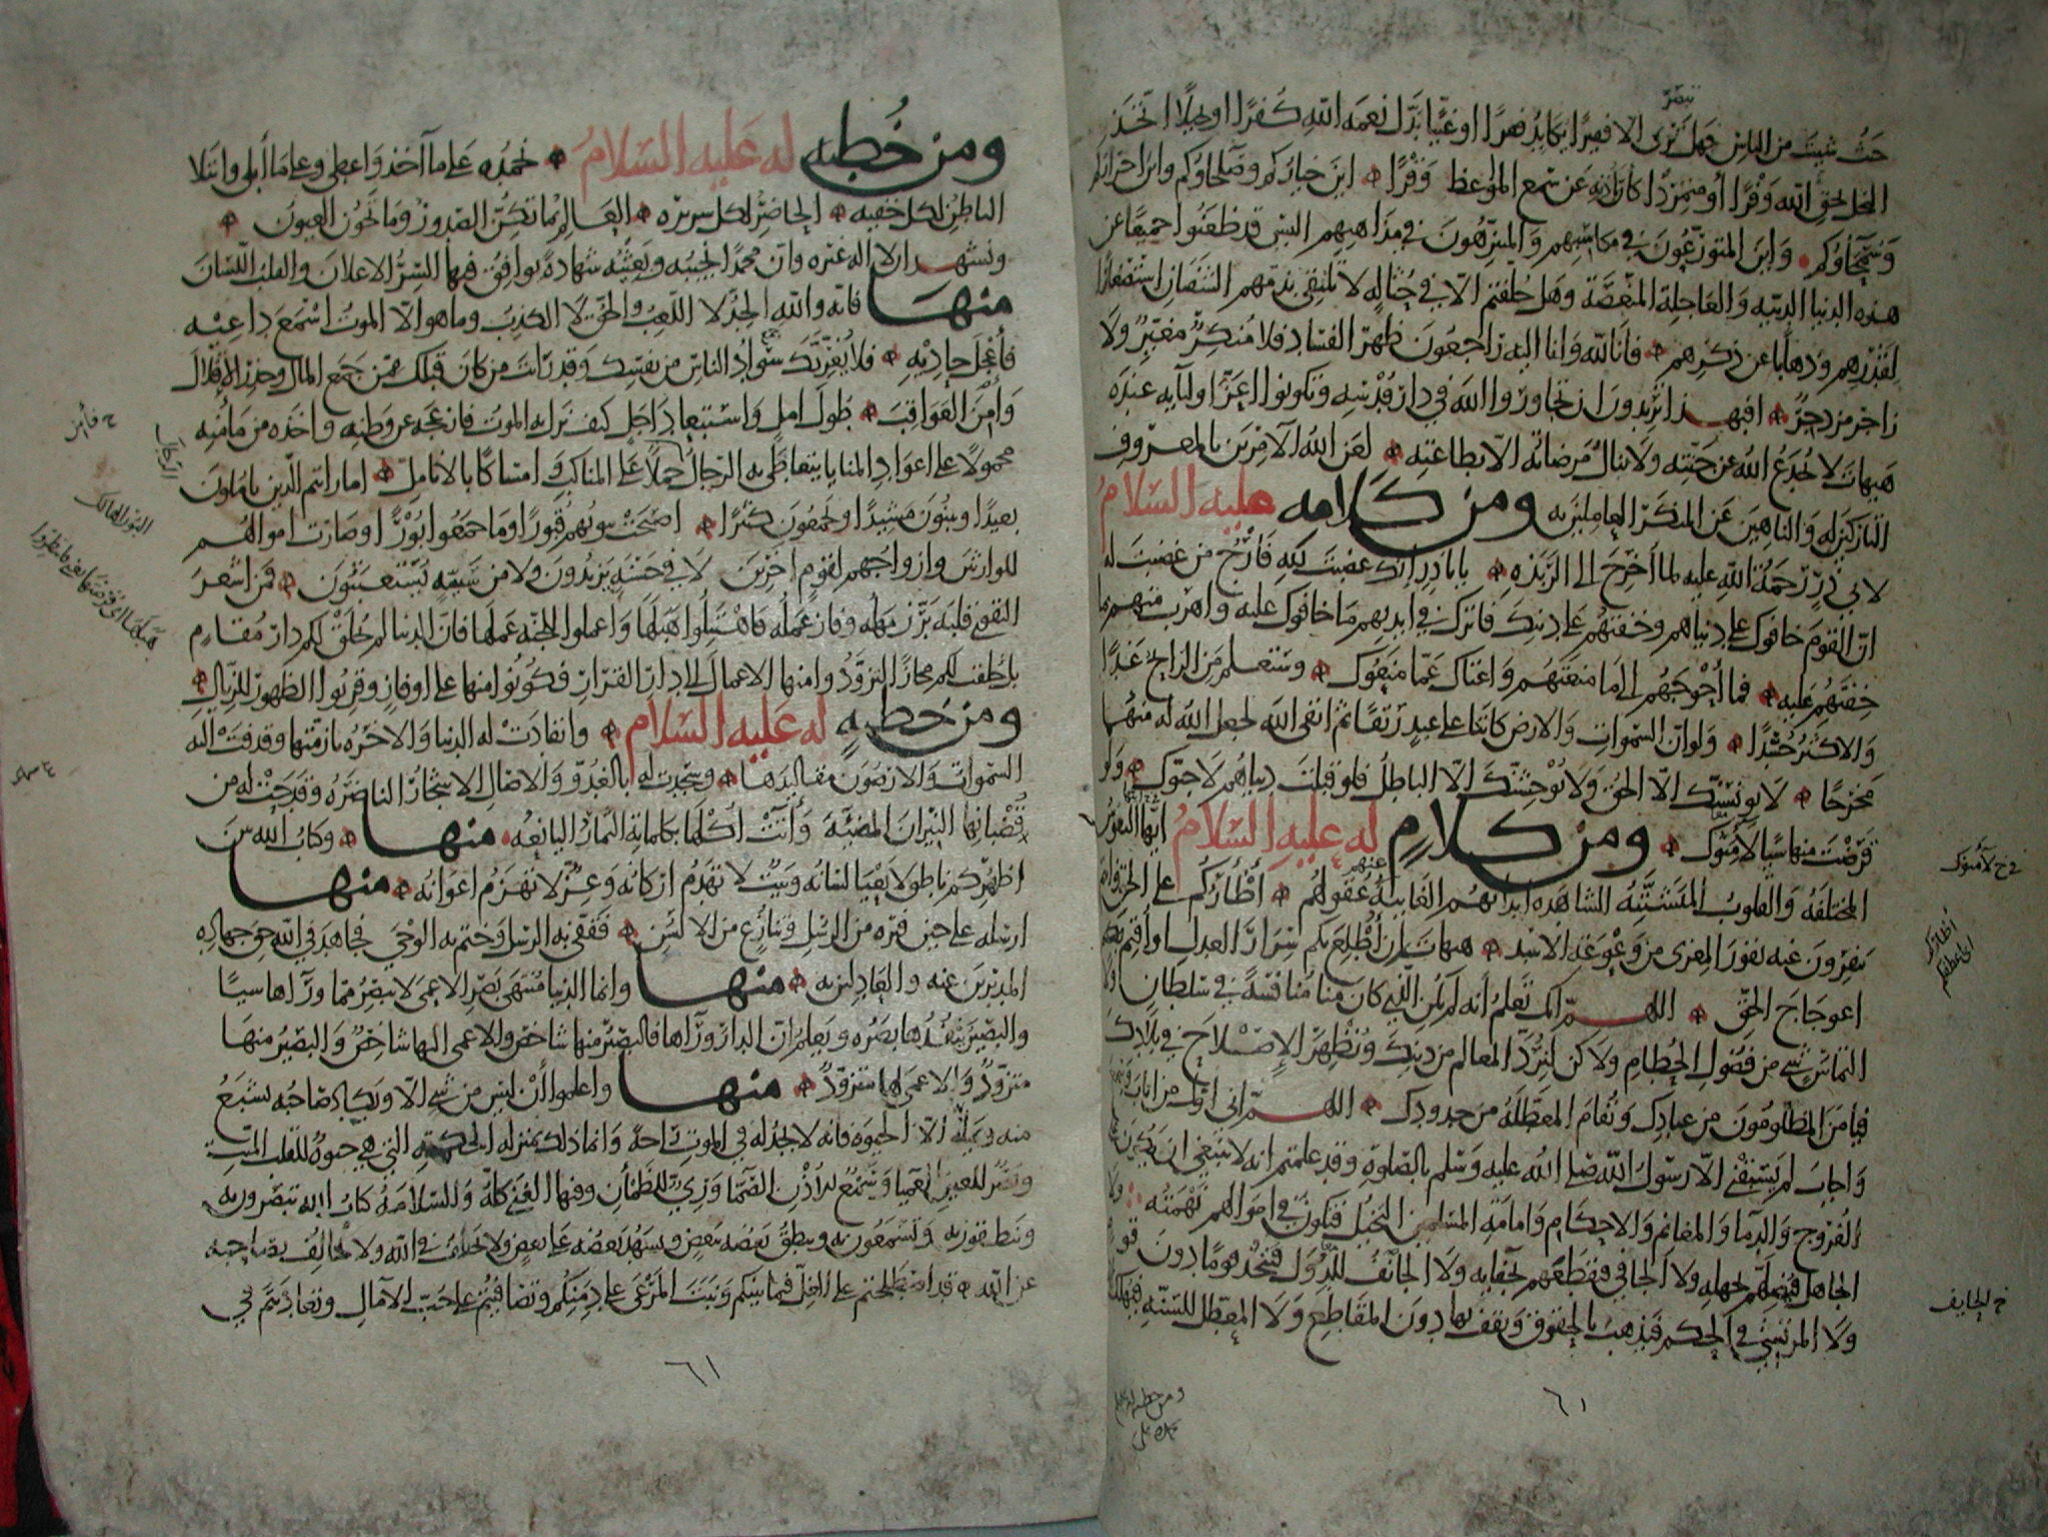 تبصر
حيث شئت من الناس فهل ترى الا فقيرا يكابد فقرا او غنيا بدل نعمة الله كفرا او بخيلا اتخذ
البخل بحق الله وفرا أو متمردا كان باذنه عن سمع المواعظ وقرا اين خياركم وصلحاؤكم واين احراركم
وسمحاؤكم واين المتورعون في مكاسبهم والمتنزهون في مذاهبهم اليس قد ظعنوا جميعا عن
هذه الدنيا الدنيه والعاجلة المنغصة وهل خلفتم الا في حثالة لا تلتقي بذمهم الشفتان استصغارا
لقدرهم وذهابا عن ذكرهم فانا لله وانا اليه راجعون ظهر الفساد فلا منكر مغير ولا
زاجر مزدجر افبهذا تريدون ان تجاوروا الله في دار قدسه وتكونوا اعز اوليآيه عنده
هيهات لا يخدع الله عن جنته ولا ينال مرضاته الا بطاعته لعن الله الآمرين بالمعروف
التاركين له والناهين عن المنكر العاملين به ومن كلامه عليه السلام
لابي ذر رحمة الله عليه لما اخرج الى الربذه يابا ذر انك غضبت لله فارج من غضبت له
ان القوم خافوك على دنياهم وخفتهم على دينك فاترك في ايديهم ما خافوك عليه واهرب منهم بما
خفتهم عليه فما أحوجهم الى ما منعتهم واغناك عما منعوك وستعلم من الرابح غدا
والاكثر حسدا ولو ان السموات والارض كانتا على عبد رتقا ثم اتقى الله لجعل الله له منهما
مخرجا لا يونسنك الا الحق ولا يوحشنك الا الباطل فلو قبلت دنياهم لاحبوك ولو
قرضت منها شيا لأمنوك ومن كلام له عليه السلام ايتها النفوس
المختلفة والقلوب المتشتته الشاهده ابدانهم الغايبة عنهم عقولهم أظأركم على الحق وانتم
تنفرون عنه نفور المعزى من وعوعة الاسد هيهات ان أطلع بكم سرار العدل او أقيم
اعوجاج الحق اللهم انك تعلم أنه لم يكن الذي كان منا منافسة في سلطان ولا
التماس شي من فضول الحطام ولاكن لنرد المعالم من دينك ونظهر الإصلاح في بلادك
فيامن المظلومون من عبادك وتقام المعطلة من حدودك اللهم اني اول من اناب وسمع
واجاب لم يسبقني الا رسول الله صلى الله عليه وسلم بالصلوة وقد علمتم انه لا ينبغي ان يكون
الفروج والدما والمغانم والاحكام وامامة المسلمين البخيل فتكون في اموالهم نهمته ولا
الجاهل فيضلهم بجهله ولا الجافي فيقطعهم بجفايه ولا الخائف للدول فيتخذ قوما دون قوم
ولا المرتشي في الحكم فيذهب بالحقوق ويقف بها دون المقاطع ولا المعطل للسنه فيهلك
خ لأمنوك
أظأركم
اي اعطفكم
خ الحايف
٦١
ومن خطبة له عليه السلام نحمده على ما آخذ واعطى وعلى ما أبلى وابتلا
الباطن لكل خفيه الحاضر لكل سريره العالم بما تكن الصدور وما تخون العيون
ونشهد ان لا اله غيره وان محمدا نجيبه وبعيثه شهادة يوافق فيها السر الاعلان والقلب اللسان
منها فانه والله الجد لا اللعب والحق لا الكذب وما هو الا الموت اسمع داعيه
فأعجل حاديه فلا يغرنك سواد الناس من نفسك وقد رأت من كان قبلك ممن جمع المال وحذر الإقلال
وأمن العواقب طول امل واستبعاد اجل كيف نزل به الموت فازعجه عن وطنه واخذه من مأمنه
محمولا على اعواد المنايا يتعاطى به الرجال حملا على المناكب وامساكا بالانامل اما رايتم الذين ياملون
بعيدا ويبنون مشيدا ويجمعون كثيرا اصبحت بيوتهم قبورا وما جمعوا بورا وصارت اموالهم
للوارثين وازواجهم لقوم اخرين لا في حسنة يزيدون ولا من سيئة يستعتبون فمن اشعر
التقوى قلبه برز مهله وفاز عمله فاهتبلوا هبلها واعملوا للجنة عملها فان الدنيا لم تخلق لكم دار مقام
بل خلقت لكم مجازا لتزودوا منها الاعمال الى دار القرار فكونوا منها على اوفاز وقربوا الظهور للزيال
ومن خطبة له عليه السلام وانقادت له الدنيا والاخره بازمتها وقذفت اليه
السموات والارضون مقاليدها وسجدت له بالغدو والاصال الاشجار الناضره وقدحت له من
قضبانها النيران المضيئة وأتت أكلها بكلماته الثمار اليانعه منها وكتاب الله بين
اظهركم ناطق لا يعيا لسانه وبيت لا تهدم اركانه وعز لا تهزم اعوانه منها
ارسله على حين فتره من الرسل وتنازع من الالسن فقفى به الرسل وختم به الوحي فجاهد في الله حق جهاده
المدبرين عنه والعادلين به منها وانما الدنيا منتهى بصر الاعمى لا يبصر مما ورآها شيا
والبصير ينفذها بصره ويعلم ان الدار ورآها فالبصير منها شاخص والاعمى اليها شاخص والبصير منها
متزود والاعمى لها متزود منها واعلموا أن ليس من شي الا ويكاد صاحبه يشبع
منه ويمله الا الحيوة فانه لا يجد له في الموت راحة وانما ذلك بمنزله الحكمة التي هي حيوة للقلب الميت
وبصر للعين العميا وسمع للاذن الصما وري للظمأن وفيها الغنى كله والسلامة كتاب الله تبصرون به
وتنطقون به وتسمعون به وينطق بعضه ببعض ويشهد بعضه على بعض ولا يختلف في الله ولا يخالف بصاحبه
عن الله قد اصطلحتم على الغل فيما بينكم ونبت المرعى على دمنكم وتصافيتم على حب الآمال وتعاديتم في
الرجال
البور الهالك
٦١